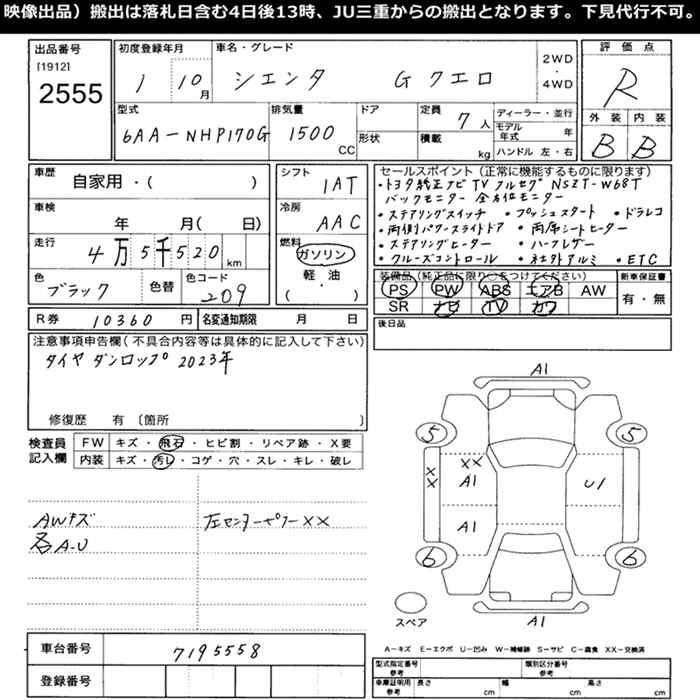 映像出品）搬出は落札日含む4日後13時、JU三重からの搬出となります。下見代行不可。
出品番号
[1912]
2555
初度登録年月
1 10月
車名・グレード
シエンタ G クエロ
2WD・4WD
評価点
R
外装 内装
B B
型式
6AA-NHP170G
排気量
1500 CC
ドア
形状
定員
7人
積載
kg
ディーラー・並行
モデル年式 年
ハンドル 左・右
車歴
自家用・( )
車検
年 月( 日)
走行
4万5千520km
色
ブラック
色替
色コード
209
シフト
IAT
冷房
AAC
燃料
ガソリン
軽・油
( )
セールスポイント（正常に機能するものに限ります）
・トヨタ純正ナビ TV フルセグ NSZT-W68T
バックモニター 全方位モニター
・ステアリングスイッチ ・プッシュスタート ・ドラレコ
・両側パワースライドドア ・両席シートヒーター
・ステアリングヒーター ・ハーフレザー
・クルーズコントロール ・社外アルミ ・ETC
装備品（純正品に限り○をつけてください）
PS PW ABS エアB AW
SR ナビ TV カワ
新車保証書
有・無
R券 10360円
名変通知期限 月 日
後日品
注意事項申告欄（不具合内容等は具体的に記入して下さい）
タイヤ ダンロップ 2023年
修復歴 有〔箇所 〕
検査員記入欄
FW キズ・飛石・ヒビ割・リペア跡・X要
内装 キズ・汚レ・コゲ・穴・スレ・キレ・破レ
AWキズ
各A-U
左センターピラーXX
A1
5 5
XX XX
A1 U1
A1
6 6
A1
スペア
A-キズ E-エクボ U-凹み W-補修跡 S-サビ C-腐食 XX-交換済
車台番号
7195558
登録番号
型式指定番号 参考
類別区分番号 参考
車庫証明用 参考
長さ cm 幅 cm 高さ cm